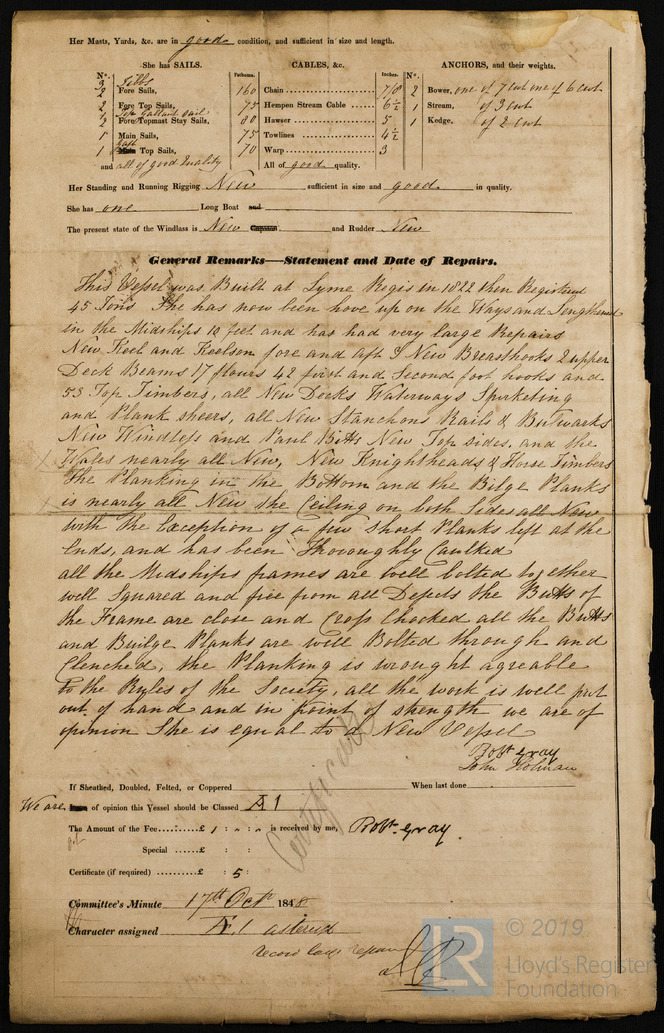 Her Masts, Yards, &c. are in good condition, and sufficient in size and length.
She has SAILS. CABLES, &c. ANCHORS, and their weights.
N°. Fathoms. Inches. N°.
3 Jibbs
2 Fore Sails, 160 Chain 7/8 2 Bower, one of 7 cwt one of 6 cwt
2 Fore Top Sails, 75 Hempen Stream Cable 6½ 1 Stream, of 3 cwt
Top Gallant Sail
Fore Topmast Stay Sails, 80 Hawser 5 1 Kedge, of 2 cwt
1 Main Sails, 75 Towlines 4½
1 Gaff Top Sails, 70 Warp 3
and all of good Quality All of good quality.
Her Standing and Running Rigging New sufficient in size and good in quality.
She has one Long Boat and
The present state of the Windlass is New Capstan and Rudder New
General Remarks—Statement and Date of Repairs.
This Vessel was Built at Lyme Regis in 1822 then Registered
45 Tons She has now been hove up on the Ways and Lengthened
in the Midships 10 feet and has had very large Repairs
New Keel and Keelson fore and aft & New Breasthooks 2 upper
Deck Beams 17 floors 42 first and Second foot hooks and
53 Top Timbers, all New Decks Waterways Spirketing
and Plank sheers, all New Stanchons Rails & Bulwarks
New Windless and Paul Bitts New Top sides, and the
Wales nearly all New, New Knightheads & Horse Timbers
The Planking in the Bottom and the Bilge Planks
is nearly all New the Ceiling on both Sides all New
with the Exception of a few short Planks left at the
Ends, and has been Thoroughly Caulked
all the Midships frames are well bolted together
well Squared and free from all Defects the Butts of
the Frame are close and Cross Chocked all the Butts
and Builge Planks are well Bolted through and
Clenched, the Planking is wrought agreable
to the Rules of the Society, all the work is well put
out of hand and in point of strength we are of
opinion She is equal to a New Vessel
Robt. Gray
John Holman
If Sheathed, Doubled, Felted, or Coppered When last done
We are of opinion this Vessel should be Classed A 1
The Amount of the Fee £ 1 : " : " is received by me, Robt. Gray.
Special £ : :
Certificate (if required) £ : 5 :
Certificate
Committee's Minute 17th Octr 1848
Character assigned Æ 1 asterisk
record large repairs
© 2019
LR
Lloyd's Register
Foundation